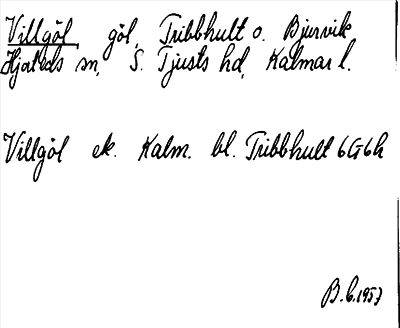 Villgöl göl, Tribbhult o. Bjurvik,
Hjorteds sn, S. Tjusts hd, Kalmar l.
Villgöl ek. Kalm. bl. Tribbhult 6G6h
B.C. 1957